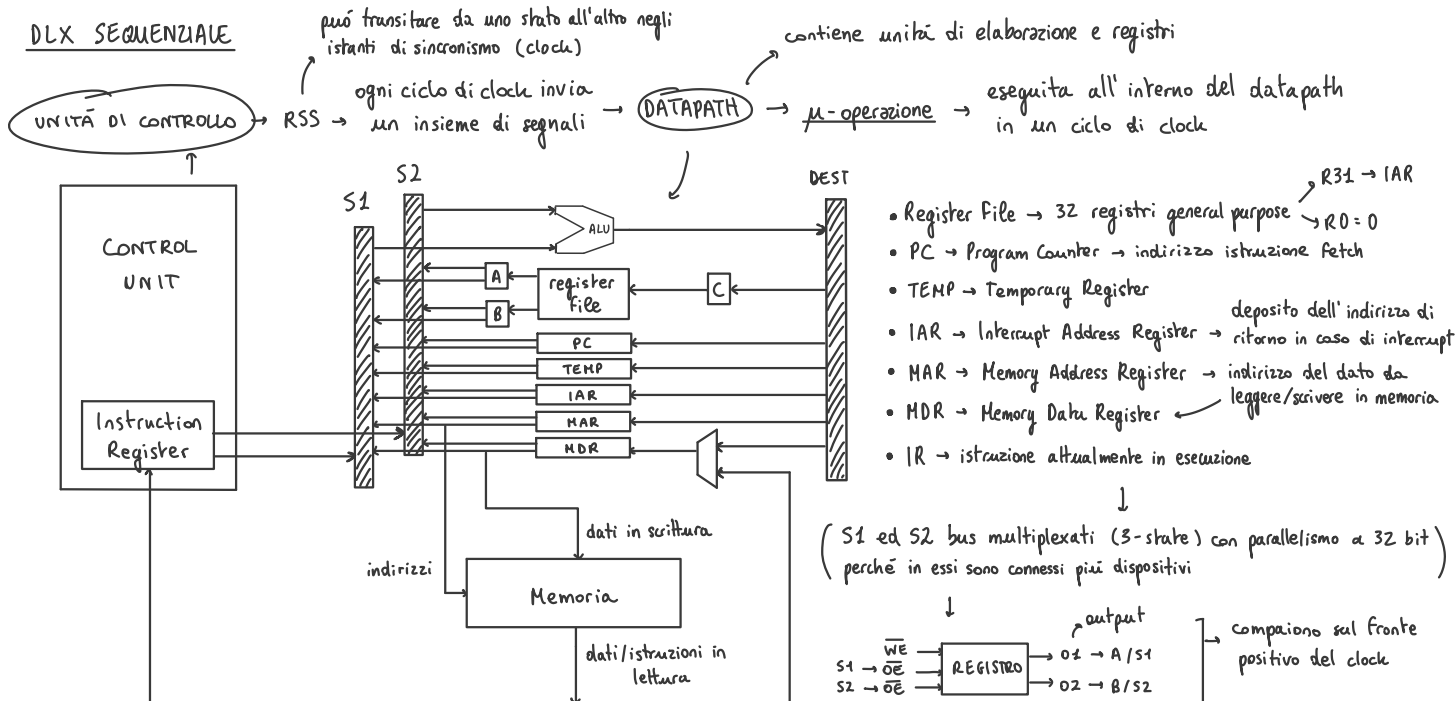 DLX SEQUENZIALE
può transitare da uno stato all'altro negli
istanti di sincronismo (clock)
contiene unità di elaborazione e registri
UNITÀ DI CONTROLLO → RSS →
ogni ciclo di clock invia
un insieme di segnali
→ DATAPATH → μ-operazione →
eseguita all'interno del datapath
in un ciclo di clock
CONTROL
UNIT
Instruction
Register
S1
S2
DEST
ALU
A
B
register
file
C
PC
TEMP
IAR
MAR
MDR
dati in scrittura
indirizzi
Memoria
dati/istruzioni in
lettura
• Register File → 32 registri general purpose
R31 → IAR
R0 = 0
• PC → Program Counter → indirizzo istruzione fetch
• TEMP → Temporary Register
• IAR → Interrupt Address Register →
deposito dell'indirizzo di
ritorno in caso di interrupt
• MAR → Memory Address Register → indirizzo del dato da
leggere/scrivere in memoria
• MDR → Memory Data Register
• IR → istruzione attualmente in esecuzione
(S1 ed S2 bus multiplexati (3-state) con parallelismo a 32 bit
perché in essi sono connessi più dispositivi)
output
WE
S1 → OE
S2 → OE
REGISTRO
O1 → A/S1
O2 → B/S2
compaiono sul fronte
positivo del clock